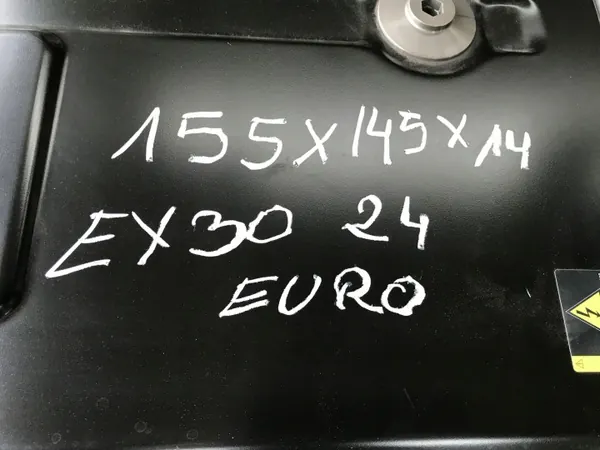 155X145X14
EX30 24
EURO